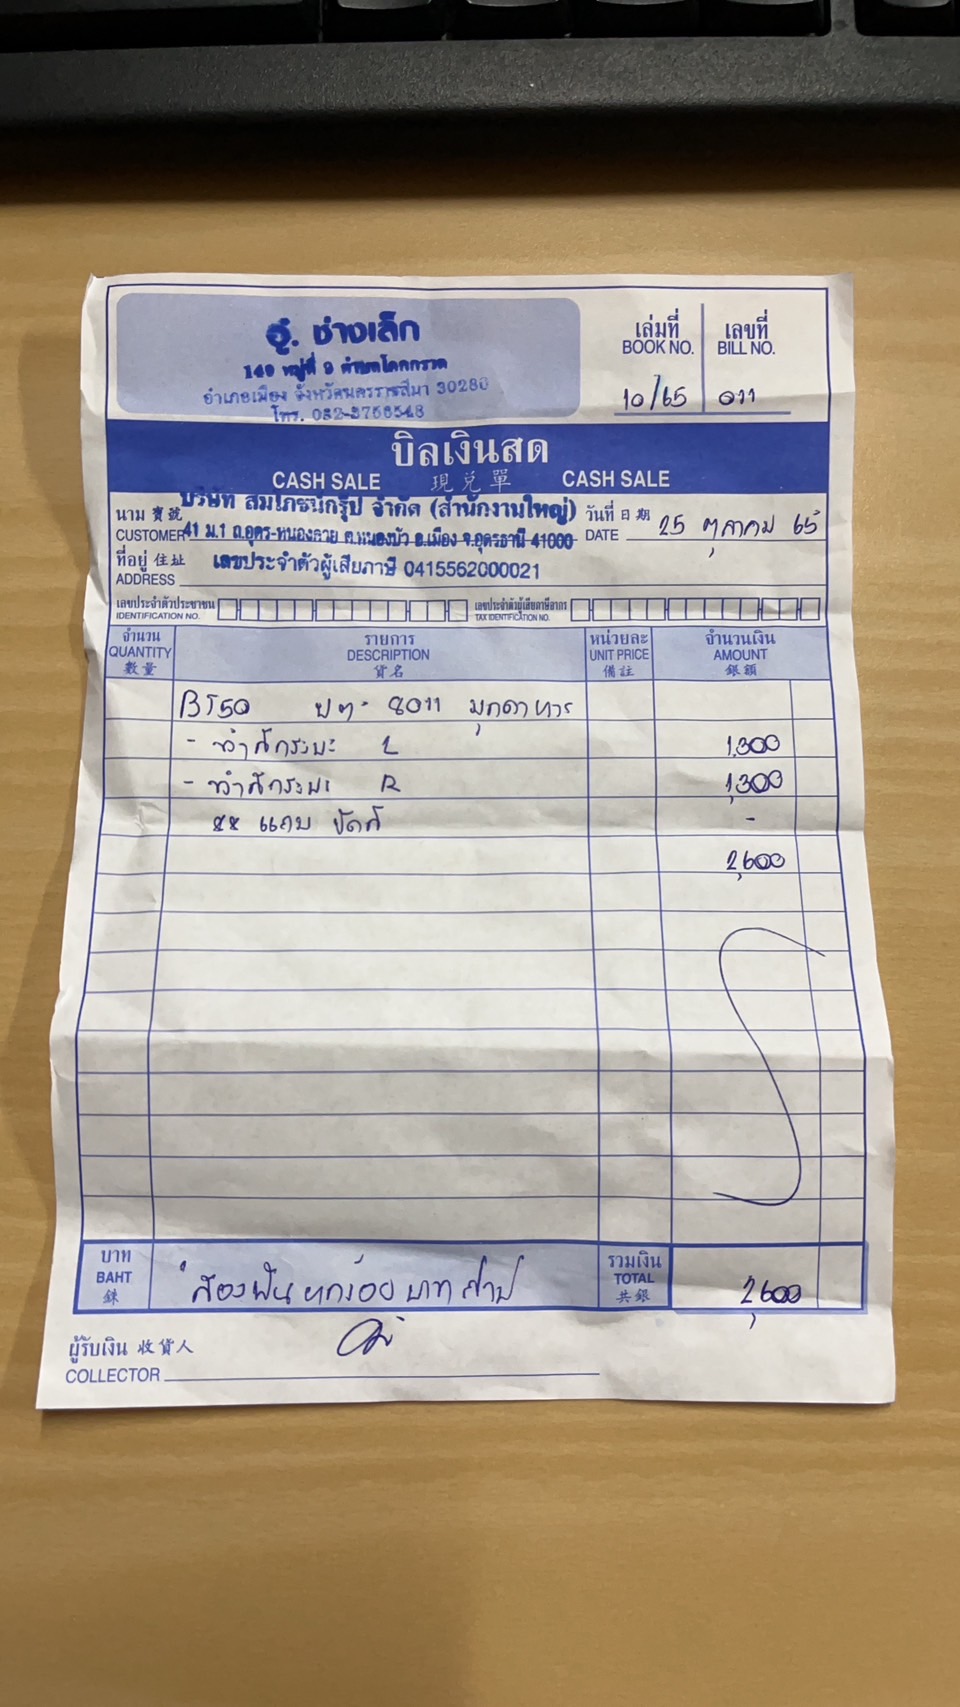 อู่. ช่างเล็ก
149 หมู่ที่ 9 ตำบลโคกกรวด
อำเภอเมือง จังหวัดนครราชสีมา 30280
โทร. 082-3756548
เล่มที่ เลขที่
BOOK NO. BILL NO.
10/65 011
บิลเงินสด
CASH SALE 現兑單 CASH SALE
นาม 寶號 บริษัท สมโภชน์กรุ๊ป จำกัด (สำนักงานใหญ่) วันที่ 日期
CUSTOMER 41 ม.1 ถ.อุดร-หนองคาย ต.หนองบัว อ.เมือง จ.อุดรธานี 41000 DATE 25 ตุลาคม 65
ที่อยู่ 住址 เลขประจำตัวผู้เสียภาษี 0415562000021
ADDRESS
เลขประจำตัวประชาชน เลขประจำตัวผู้เสียภาษีอากร
IDENTIFICATION NO. TAX IDENTIFICATION NO.
จำนวน รายการ หน่วยละ จำนวนเงิน
QUANTITY DESCRIPTION UNIT PRICE AMOUNT
數量 貨名 備註 銀額
BT50 ปต- 8011 มุกดาหาร
- ทำสีกระบะ L 1,300
- ทำสีกระบะ R 1,300
** แถม ขัดสี -
2,600
บาท รวมเงิน
BAHT สองพันหกร้อยบาทถ้วน TOTAL 2,600
銖 共銀
ผู้รับเงิน 收貨人
COLLECTOR